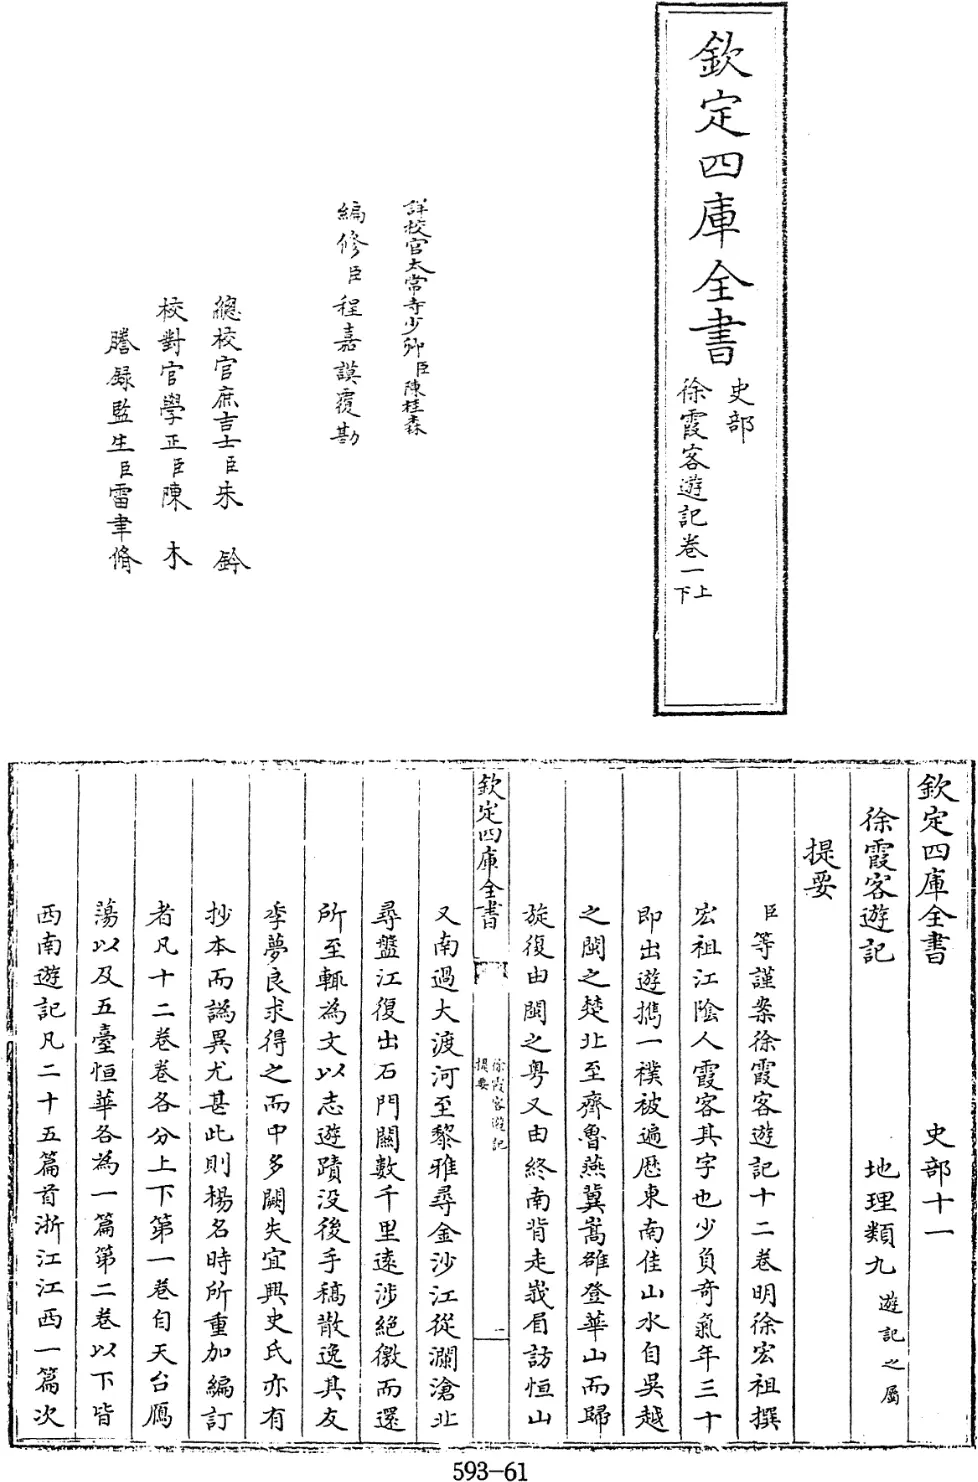 欽定四庫全書
史部
徐霞客遊記卷一上
下
詳校官太常寺少卿臣陳桂森
編修臣程嘉謨覆勘
總校官庶吉士臣朱鈐
校對官學正臣陳木
謄錄監生臣雷聿脩
欽定四庫全書 史部十一
徐霞客遊記 地理類九 遊記之屬
提要
臣等謹案徐霞客遊記十二卷明徐宏祖撰
宏祖江陰人霞客其字也少負奇氣年三十
即出遊攜一襆被遍歷東南佳山水自吳越
之閩之楚北至齊魯燕冀嵩雒登華山而歸
旋復由閩之粤又由終南背走峩眉訪恒山
欽定四庫全書
徐霞客遊記
提要
一
又南過大渡河至黎雅尋金沙江從瀾滄北
尋盤江復出石門關數千里遠涉絕徼而還
所至輒為文以志遊蹟没後手稿散逸其友
季夢良求得之而中多闕失宜興史氏亦有
抄本而譌異尤甚此則楊名時所重加編訂
者凡十二卷卷各分上下第一卷自天台鴈
蕩以及五臺恒華各為一篇第二卷以下皆
西南遊記凡二十五篇首浙江江西一篇次
593–61